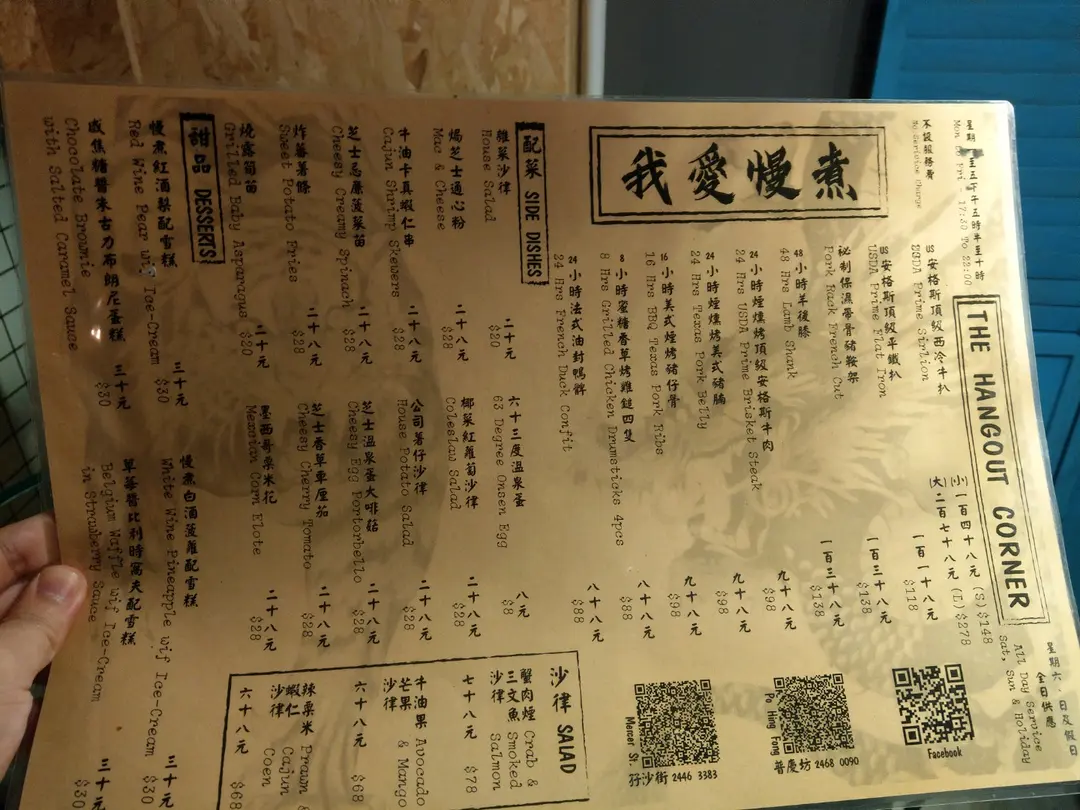 星期一至五下午五時半至十時
Mon - Fri - 17:30 To 22:00
不設服務費
No Serivice Charge
THE HANGOUT CORNER
星期六，日及假日
全日供應
All Day Service
Sat, Sun & Holiday
我愛慢煮
US安格斯頂級西冷牛扒 (小)一百四十八元 (S)$148
USDA Prime Sirlion (大)二百七十八元 (L)$278
US安格斯頂級平鐵扒 一百一十八元
USDA Prime Flat Iron $118
秘制保濕帶骨豬鞍架 一百三十八元
Pork Rack French Cut $138
48小時羊後膝 一百三十八元
48 Hrs Lamb Shank $138
24小時煙燻烤頂級安格斯牛肉 九十八元
24 Hrs USDA Prime Brisket Steak $98
24小時煙燻烤美式豬腩 九十八元
24 Hrs Texas Pork Belly $98
16小時美式煙烤豬仔骨 九十八元
16 Hrs BBQ Texas Pork Ribs $98
8小時蜜糖香草烤雞鎚四隻 八十八元
8 Hrs Grilled Chicken Drumsticks 4pcs $88
24小時法式油封鴨髀 八十八元
24 Hrs French Duck Confit $88
Facebook
Po Hing Fong
普慶坊 2468 0090
Mercer St.
孖沙街 2446 3383
配菜 SIDE DISHES
雜菜沙律 二十元
House Salad $20
焗芝士通心粉 二十八元
Mac & Cheese $28
牛油卡真蝦仁串 二十八元
Cajun Shrimp Skewers $28
芝士忌廉菠菜苗 二十八元
Cheesy Creamy Spinach $28
炸蕃薯條 二十八元
Sweet Potato Fries $28
燒露荀苗 二十元
Grilled Baby Asparagus $20
六十三度溫泉蛋 八元
63 Degree Onsen Egg $8
椰菜紅蘿蔔沙律 二十八元
Coleslaw Salad $28
公司薯仔沙律 二十八元
House Potato Salad $28
芝士溫泉蛋大啡菇 二十八元
Cheesy Egg Portorbello $28
芝士香草車厘茄 二十八元
Cheesy Cherry Tomato $28
墨西哥粟米花 二十八元
Mexcian Corn Elote $28
沙律 SALAD
蟹肉煙三文魚沙律 Crab & Smoked Salmon
七十八元 $78
牛油果芒果沙律 Avocado & Mango
六十八元 $68
辣粟米蝦仁沙律 Prawn & Cajun Coen
六十八元 $68
甜品 DESSERTS
慢煮紅酒梨配雪糕 三十元
Red Wine Pear wif Ice-Cream $30
咸焦糖醬朱古力布朗尼蛋糕 三十元
Chocolate Brownie $30
with Salted Caramel Sauce
慢煮白酒菠蘿配雪糕 三十元
White Wine Pineapple wif Ice-Cream $30
草莓醬比利時窩夫配雪糕 三十元
Belgium Waffle wif Ice-Cream $30
in Strawberry Sauce